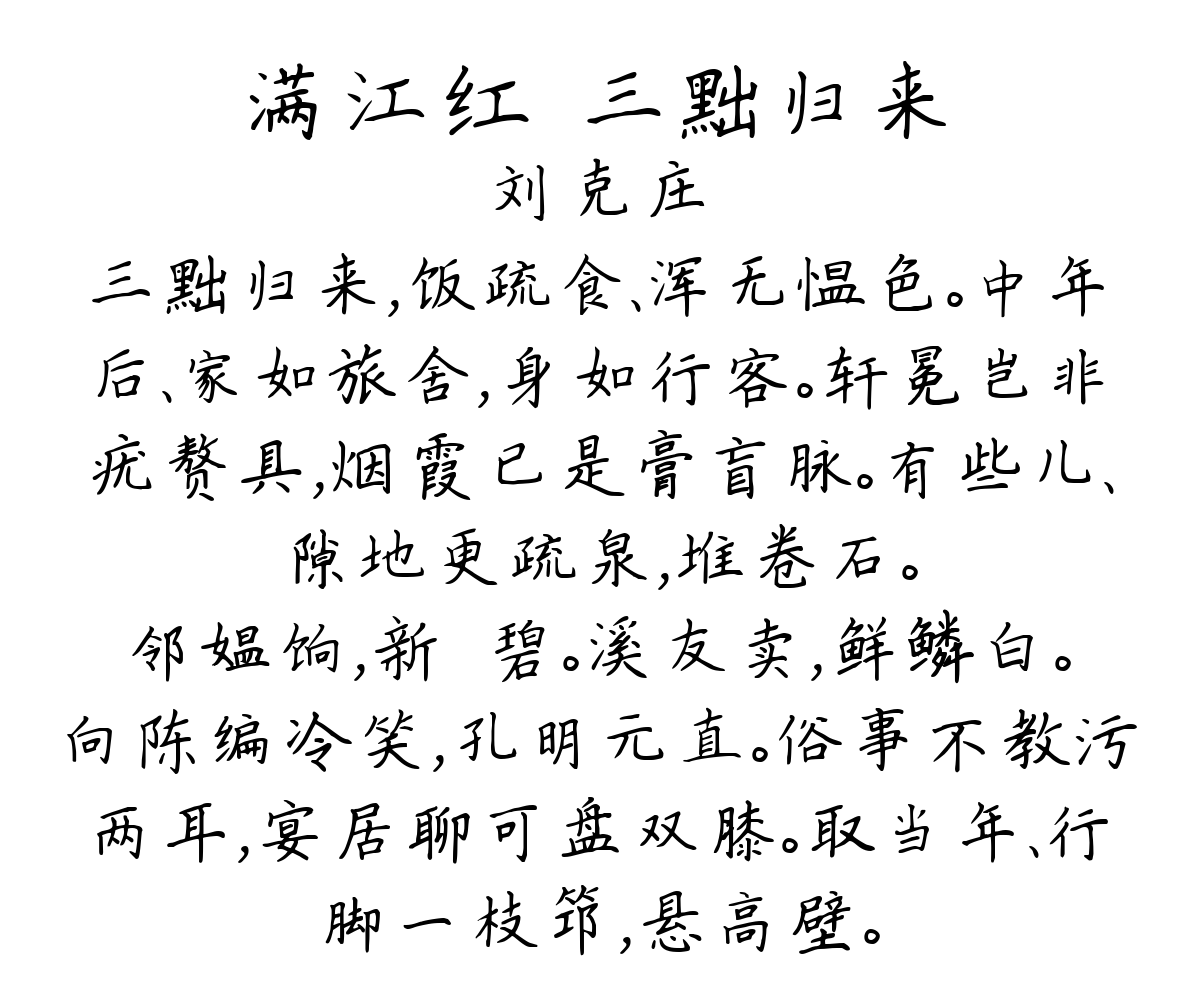 满江红 三黜归来
刘克庄
三黜归来,饭疏食、浑无愠色。中年
后、家如旅舍,身如行客。轩冕岂非
疣赘具,烟霞已是膏盲脉。有些儿、
隙地更疏泉,堆卷石。
邻媪饷,新 碧。溪友卖,鲜鳞白。
向陈编冷笑,孔明元直。俗事不教污
两耳,宴居聊可盘双膝。取当年、行
脚一枝筇,悬高壁。